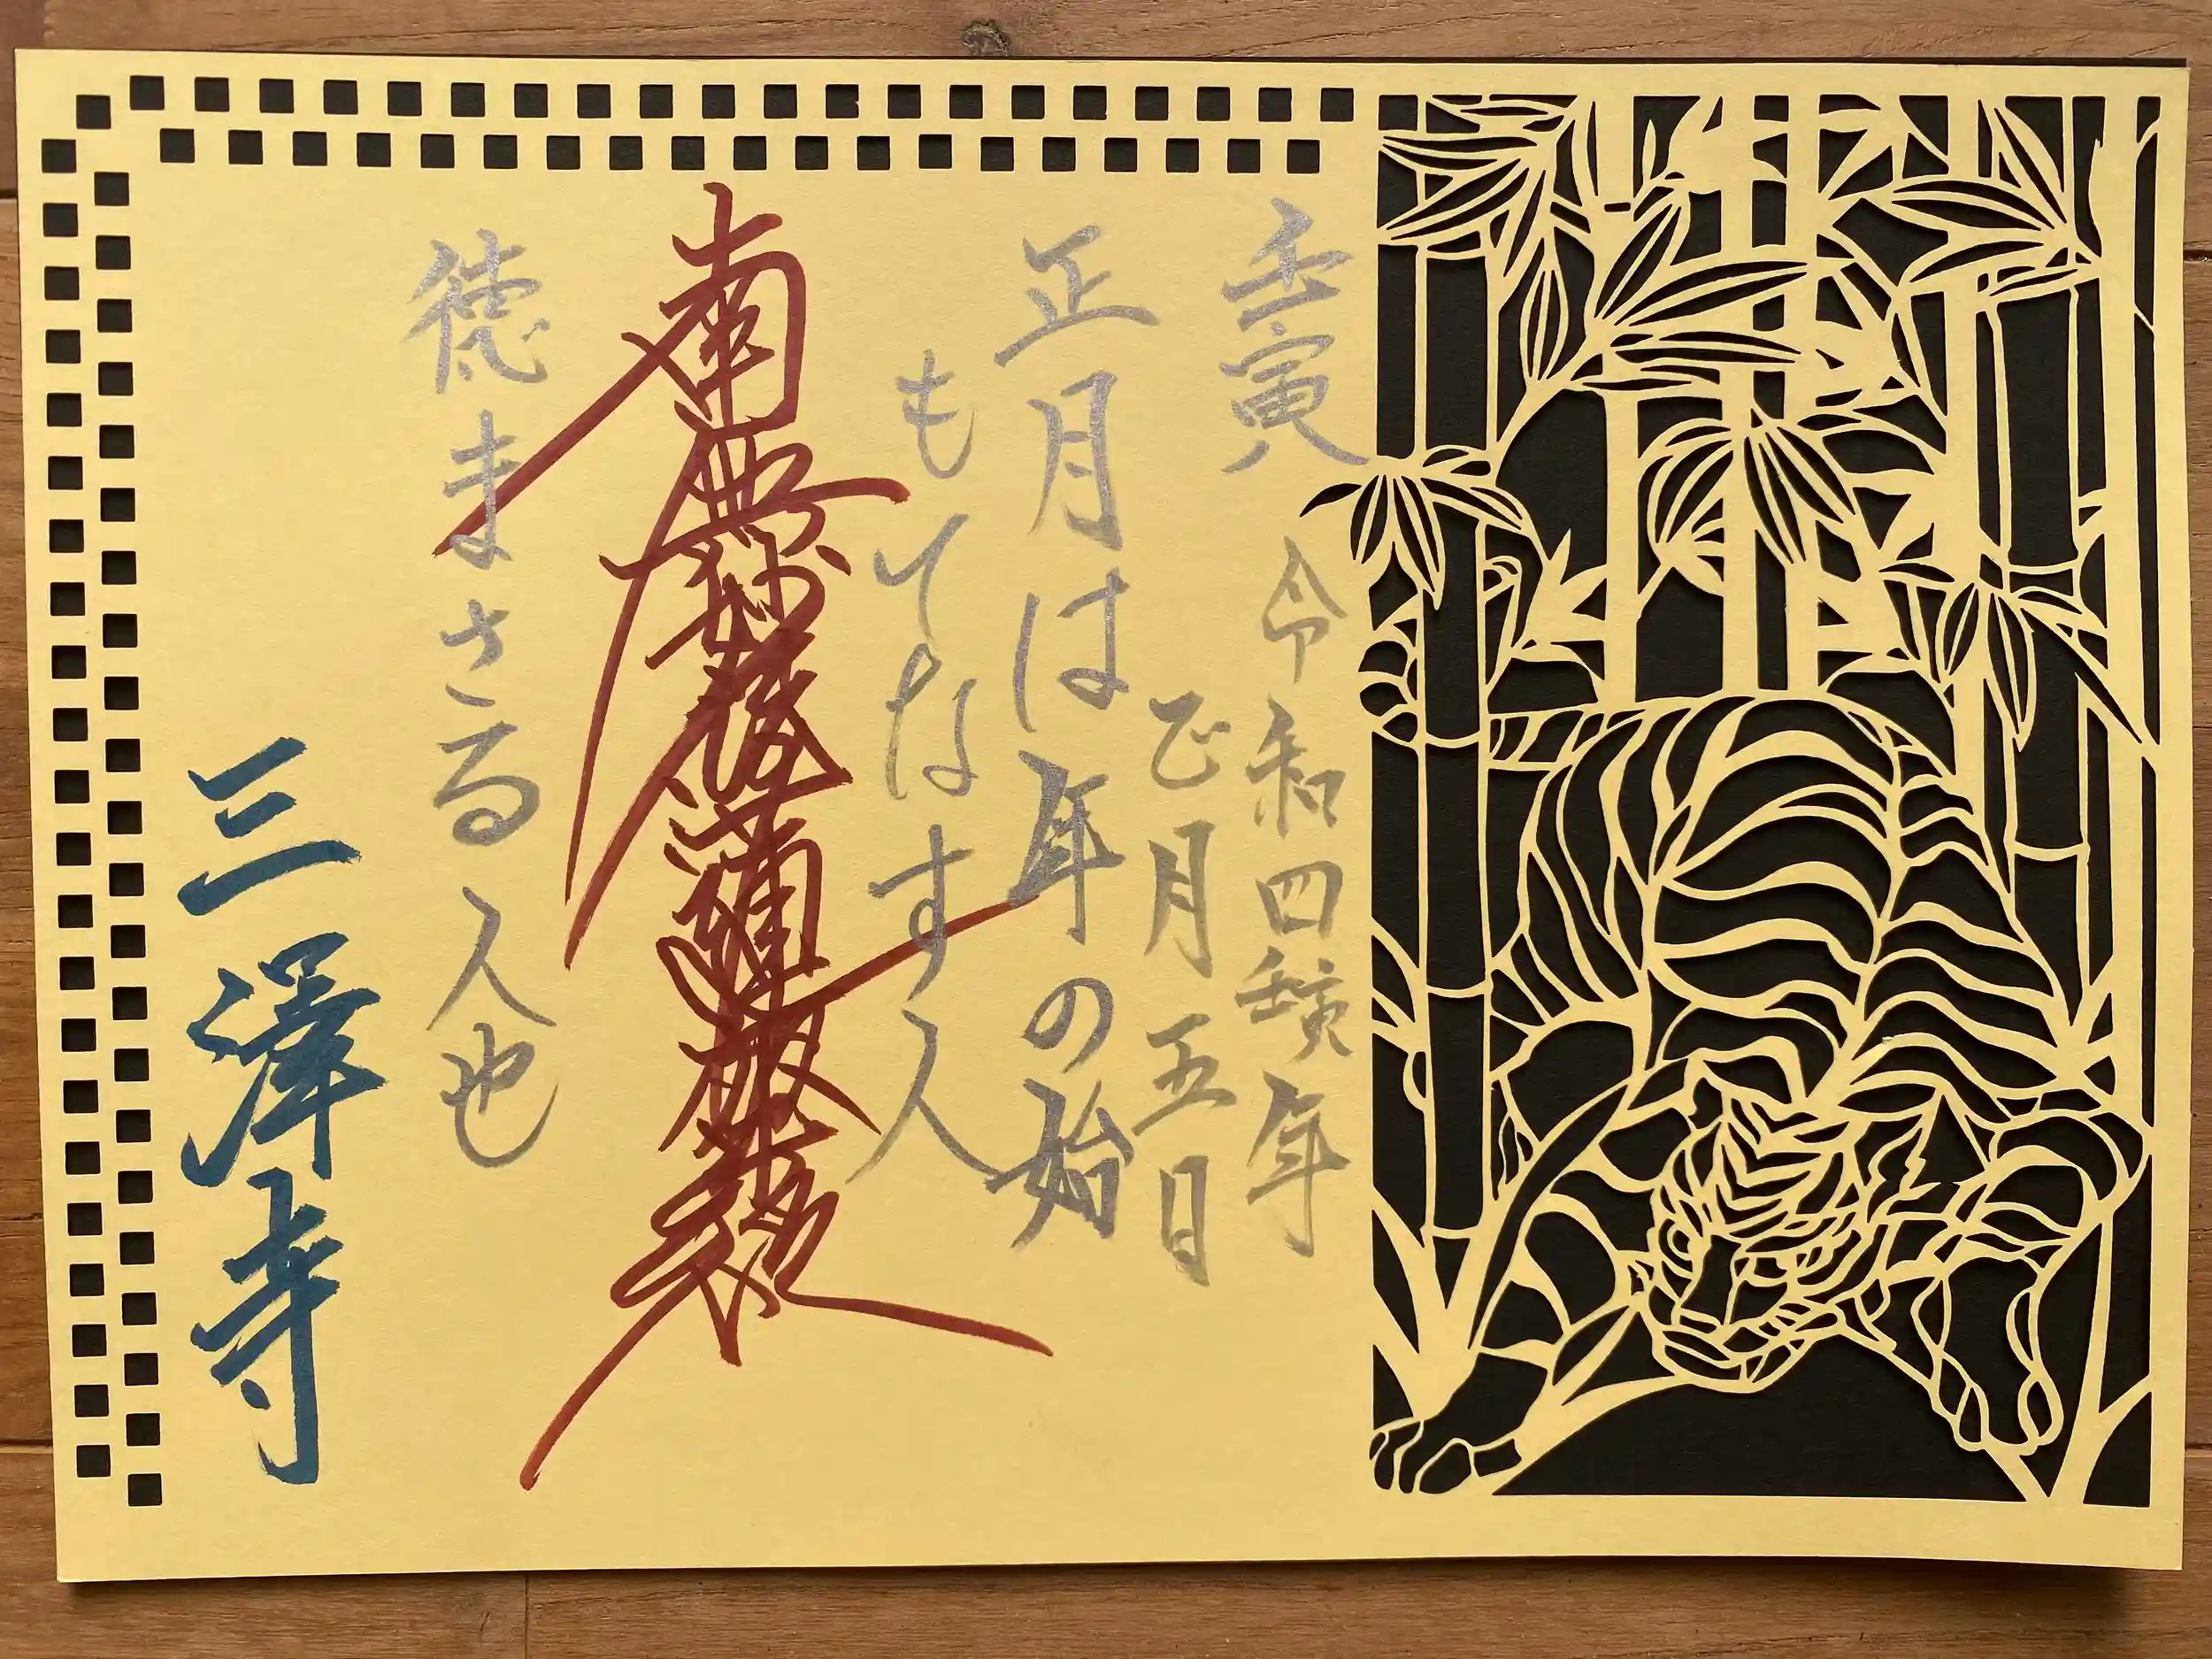 壬寅
令和四壬寅年
正月五日
正月は年の始
もてなす人
南無妙法蓮華経
徳まさる人也
三澤寺